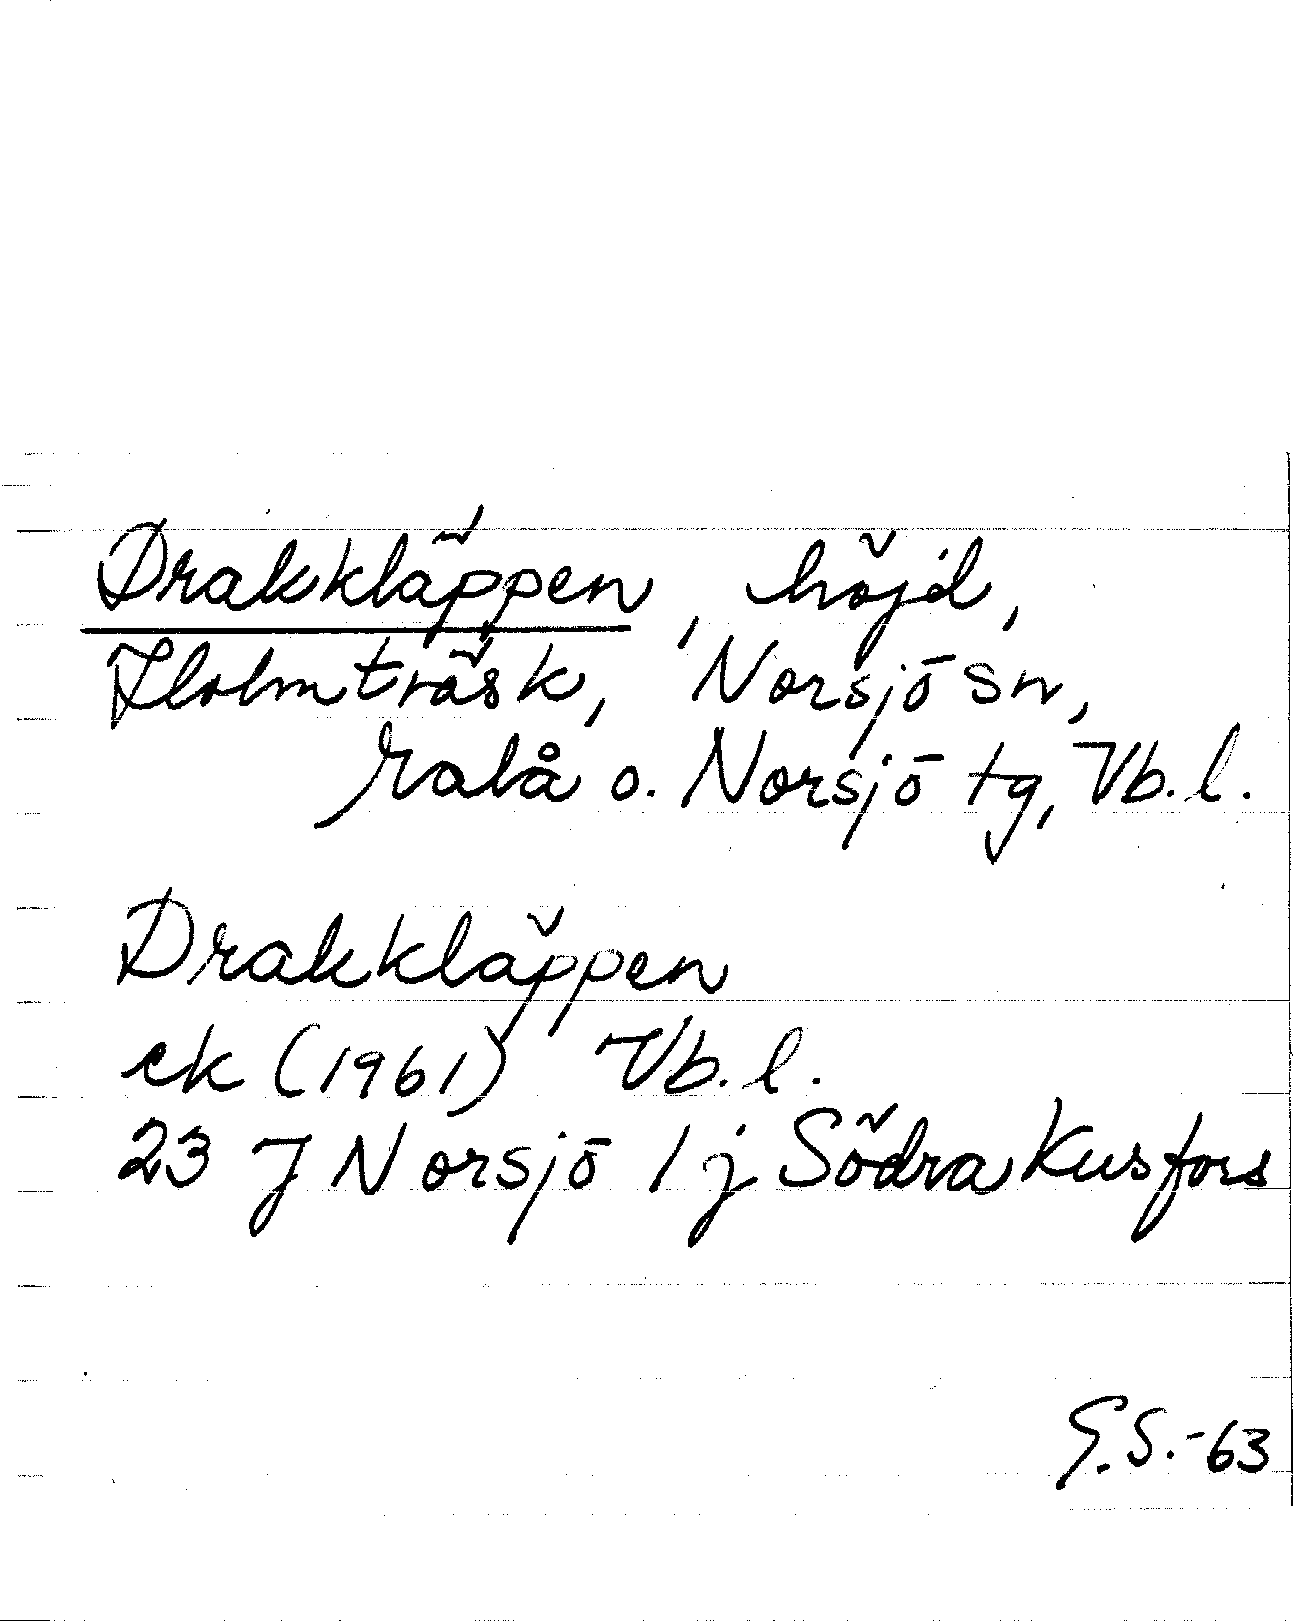 Drakkläppen, höjd,
Holmträsk, Norsjö sn,
Malå o. Norsjö tg, Vb. l.
Drakkläppen
ek (1961) Vb. l.
23 J Norsjö 1 j Södra Kusfors
G.S.-63